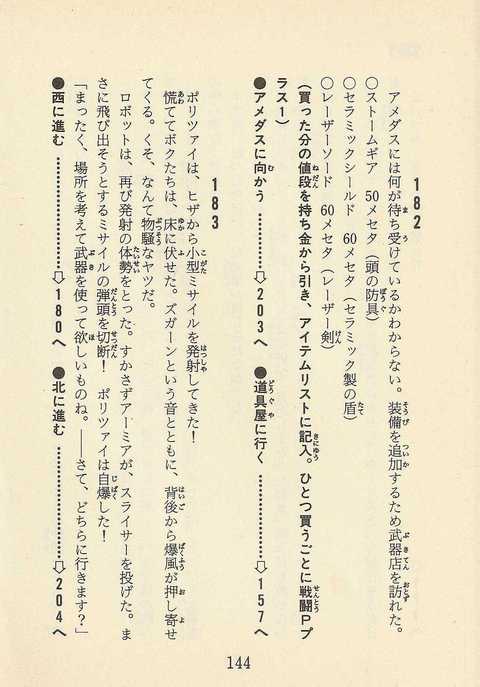 182
アメダスには何が待ち受けているかわからない。装備を追加するため武器店を訪れた。
○ストームギア 50メセタ(頭の防具)
○セラミックシールド 60メセタ(セラミック製の盾)
○レーザーソード 60メセタ(レーザー剣)
(買った分の値段を持ち金から引き、アイテムリストに記入。ひとつ買うごとに戦闘Pプ
ラス1)
●アメダスに向かう…………⇨203へ ●道具屋に行く…………⇨157へ
183
ポリツァイは、ヒザから小型ミサイルを発射してきた!
慌ててボクたちは、床に伏せた。ズガーンという音とともに、背後から爆風が押し寄せ
てくる。くそ、なんて物騒なヤツだ。
ロボットは、再び発射の体勢をとった。すかさずアーミアが、スライサーを投げた。ま
さに飛び出そうとするミサイルの弾頭を切断! ポリツァイは自爆した!
「まったく、場所を考えて武器を使って欲しいものね。——さて、どちらに行きます?」
●西に進む…………⇨180へ ●北に進む…………⇨204へ
144